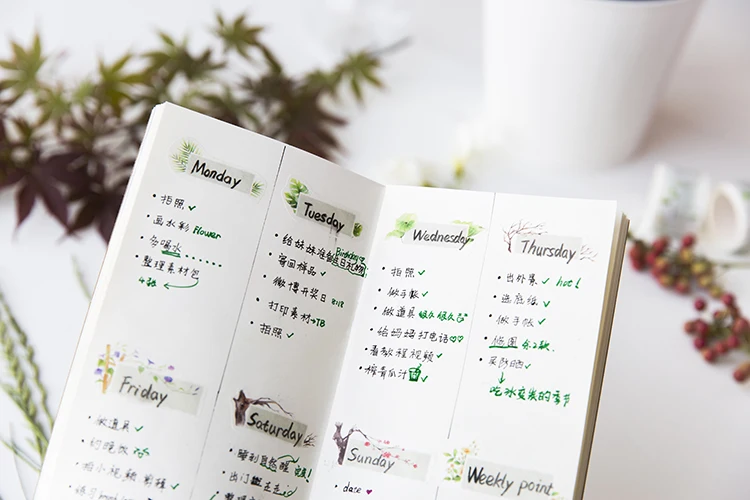 Monday
拍照 ✓
画水彩 Flower
多喝水
整理素材包
4套
Tuesday
给妹妹准备生日礼物
Birthday
寄回样品 ✓
微博开奖日
打印素材→TB
拍照 ✓
Wednesday
拍照 ✓
做手帐 ✓
做道具 很久很久
给妈妈打电话 ♡♡
看教程视频 ✓
榨青瓜汁 ✓
Thursday
出外景 ✓ hot!
选底纸 ✓
做手帐 ✓
修图 余2张
买防晒 ✓
吃冰变装的季节
Friday
做道具 ✓
约晚饭
拍小视频 剪辑 ✓
Saturday
睡到自然醒
出门
Sunday
date ♥
Weekly point